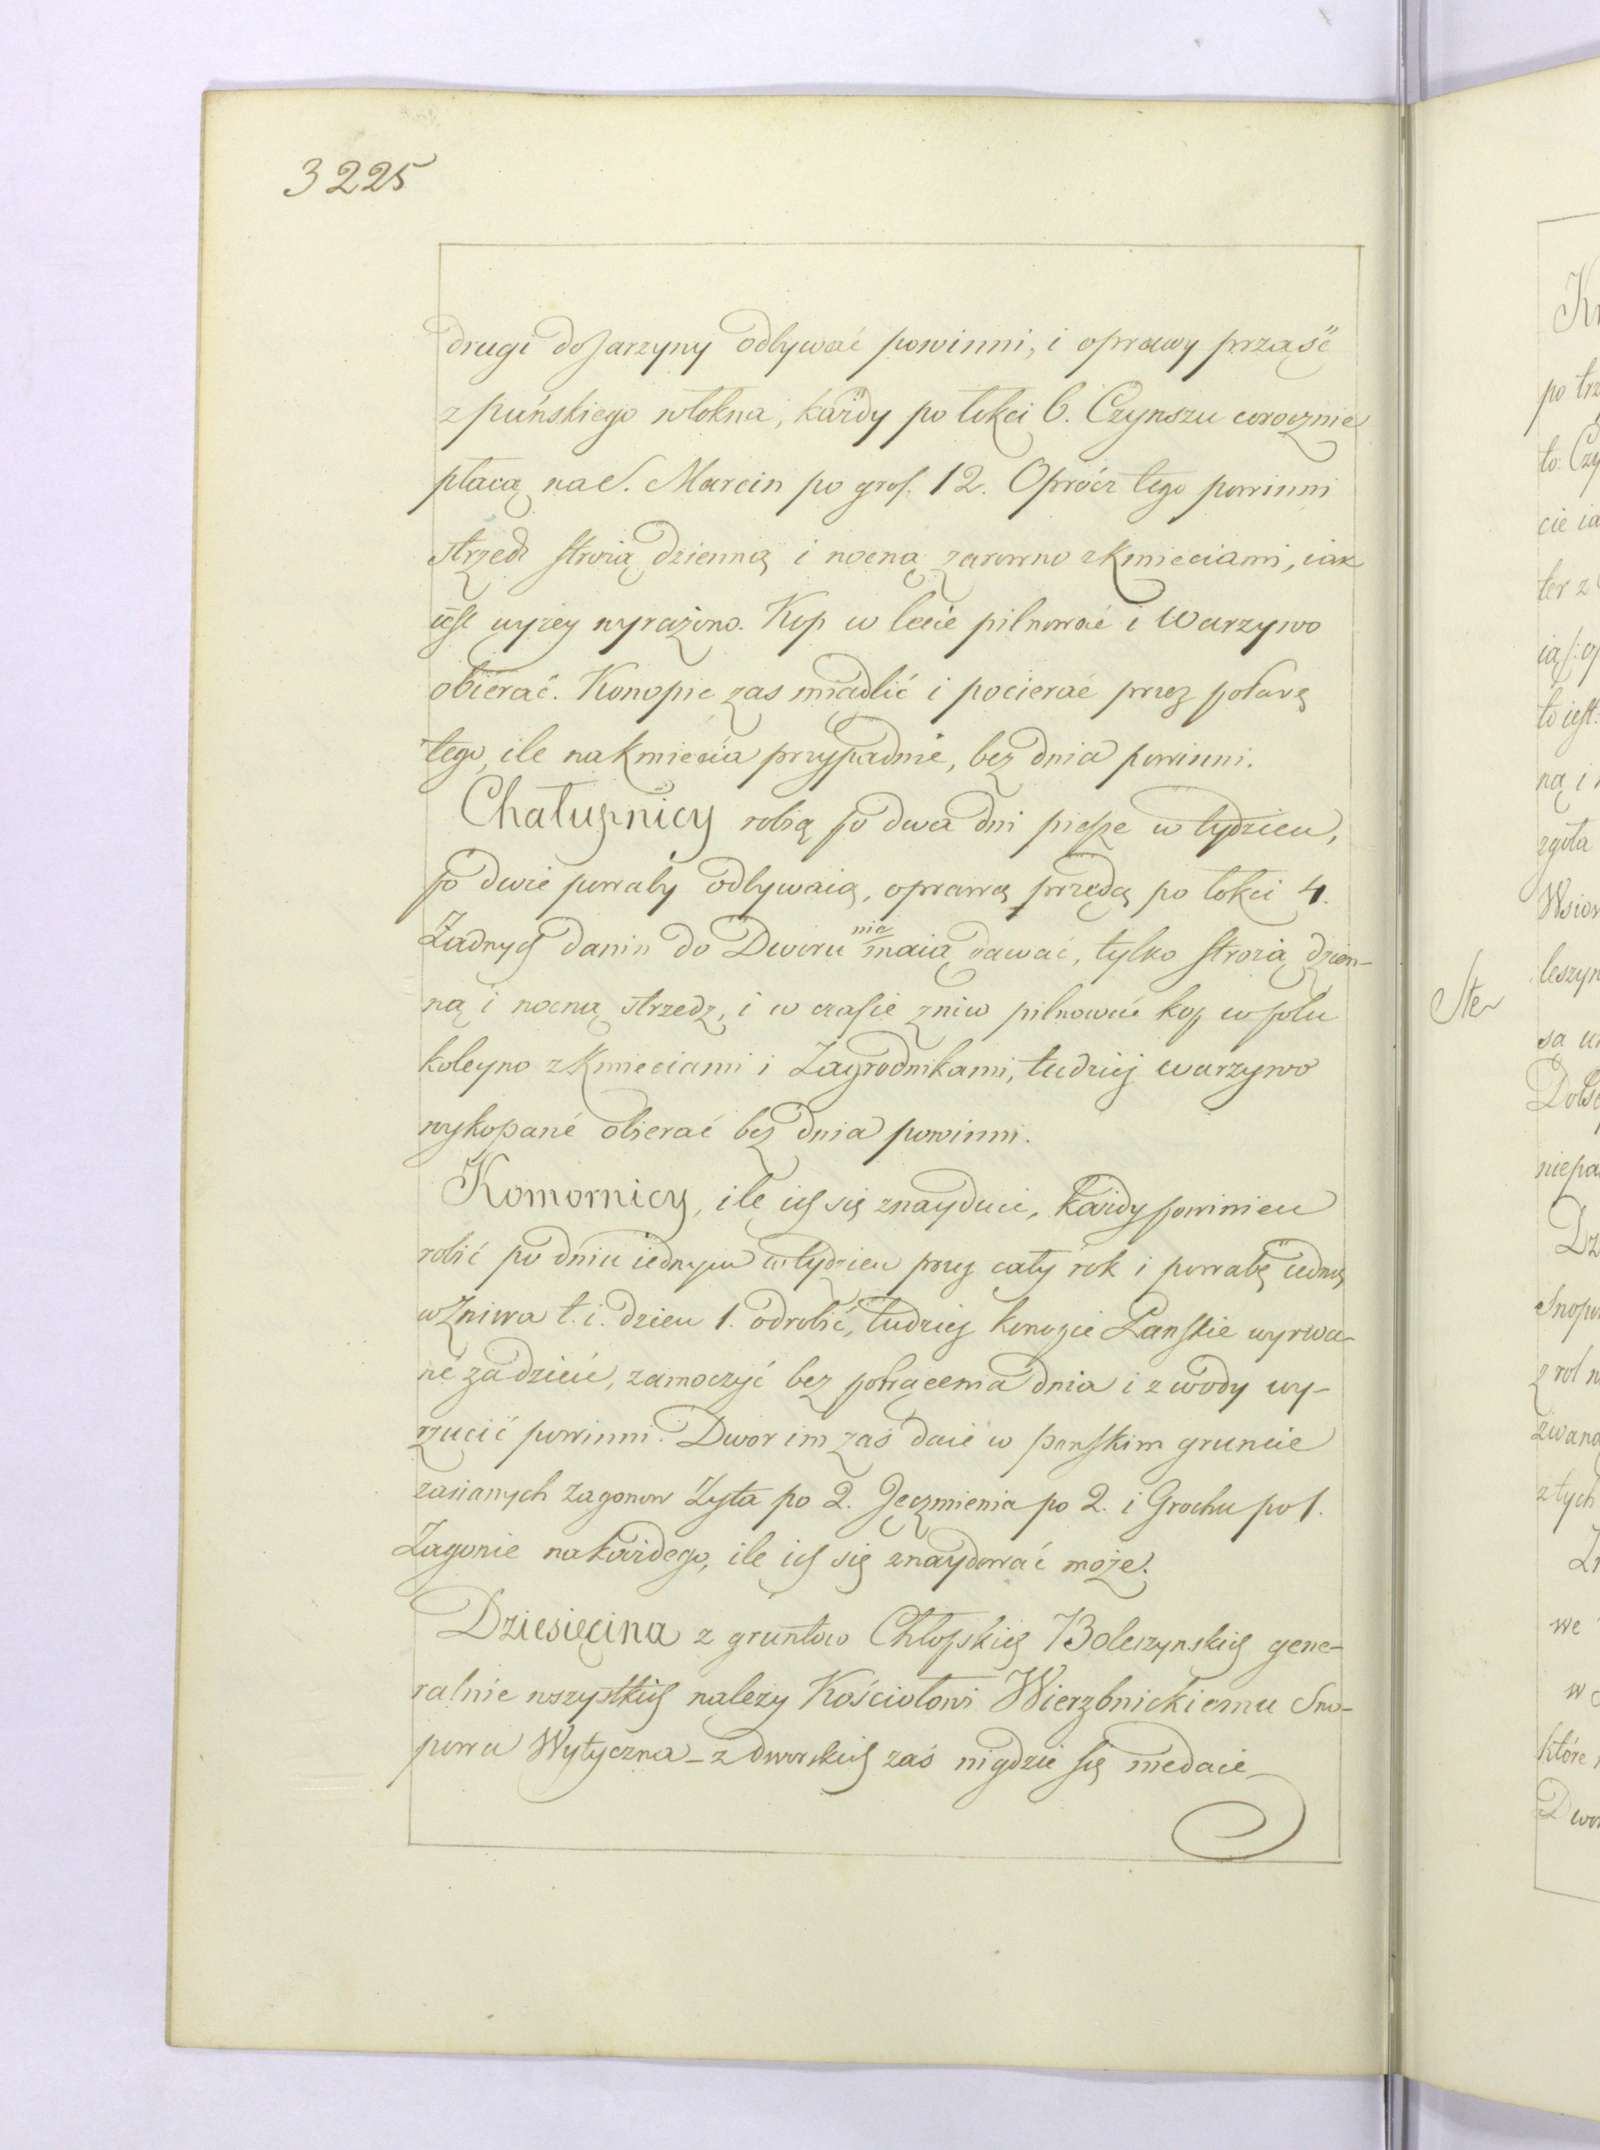 3225
drugi do Jarzyny odbywać powinni, i oprawy prząść
z pańskiego włokna, każdy po łokci 6. Czynszu corocznie
płacą na S. Marcin po gros. 12. Oprócz tego powinni
strzedz stróżą dzienną i nocną zarowno z Kmieciami, iak
iest wyżey wyrażono. Kop w lecie pilnować i Warzywo
obierać. Konopie zas miądlić i pocierać przez połowę
tego, ile na Kmiecia przypadnie, bez dnia powinni.
Chałupnicy robią po dwa dni piesze w tydzień,
po dwie powaby odbywaią, oprawą przędą po łokci 4.
Żadnych danin do Dworu nie maią dawać, tylko strożą dzien-
ną i nocną strzedz, i w czasie zniw pilnować kop w polu
koleyno z Kmieciami i Zagrodnikami, tudzież warzywo
wykopané obierać bez dnia powinni.
Komornicy, ile ich się znayduie, każdy powinien
robić po dniu iednym w tydzień przez cały rok i powabę iedną
w Żniwa t. i. dzien 1. odrobić, tudzież konopie Pańskie wyrwa-
né za dzień, zamoczyć bez potrącenia dnia i z wody wy-
rzucić powinni. Dwor im zaś daie w pańskim gruncie
zasianych zagonow Żyta po 2. Jęczmienia po 2. i Grochu po 1.
Zagonie na każdego, ile ich się znaydować może.
Dziesięcina z gruntow Chłopskich Boleszynskich gene-
ralnie wszystkich należy Kościołowi Wierzbnickiemu Sno-
powa Wytyczna – z dworskich zaś nigdzie się niedaie